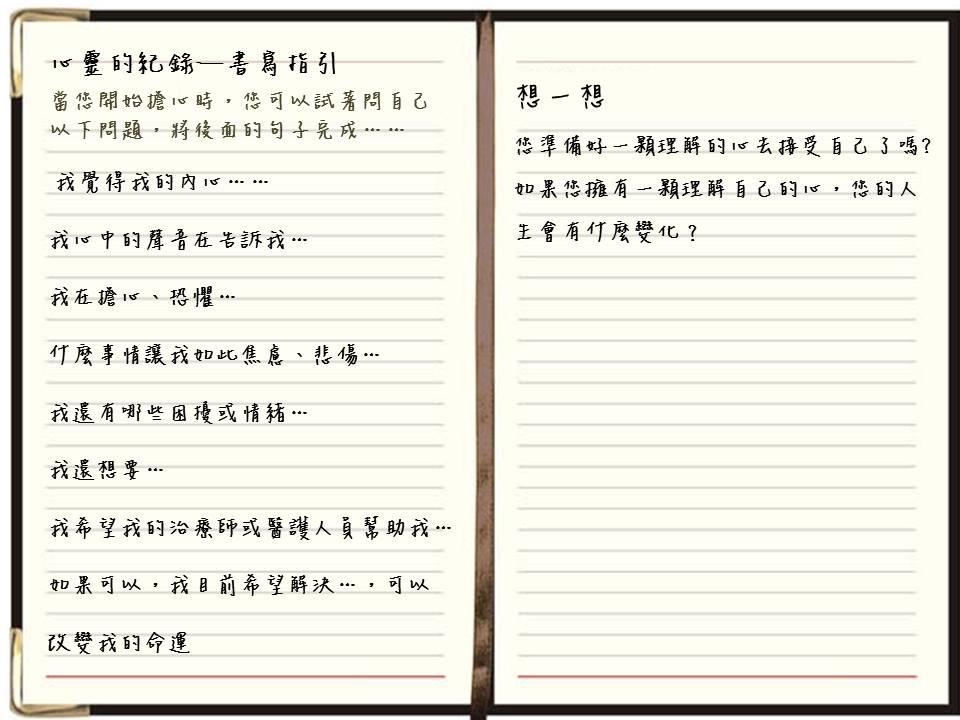 心靈的紀錄—書寫指引
當您開始擔心時，您可以試著問自己
以下問題，將後面的句子完成……
我覺得我的內心……
我心中的聲音在告訴我…
我在擔心、恐懼…
什麼事情讓我如此焦慮、悲傷…
我還有哪些困擾或情緒…
我還想要…
我希望我的治療師或醫護人員幫助我…
如果可以，我目前希望解決…，可以
改變我的命運
想一想
您準備好一顆理解的心去接受自己了嗎？
如果您擁有一顆理解自己的心，您的人
生會有什麼變化？